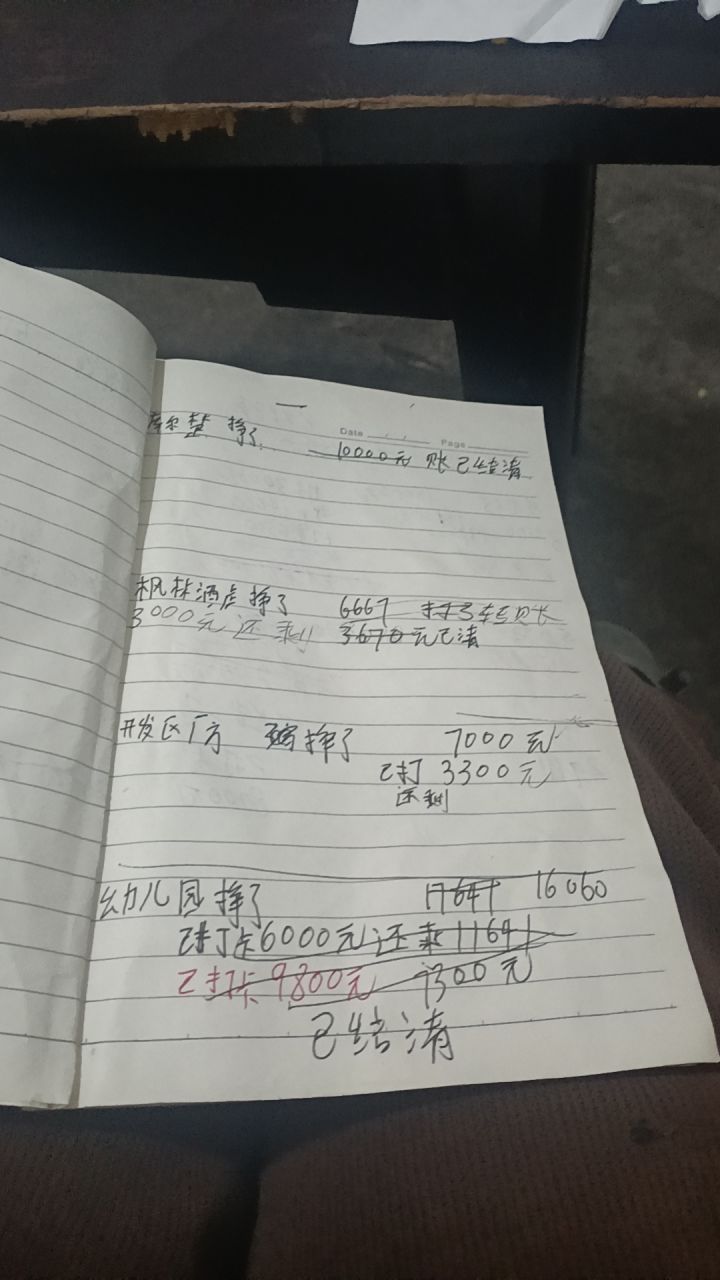 Date / / Page
挣了 10000元 账已结清
枫林酒店挣了 6667
3000元还剩 3670元已清
开发区厂方 挣了 7000元
已打 3300元
还剩
幼儿园挣了 17641 16060
已打卡6000元还剩11641
已打卡9800元 1300元
已结清